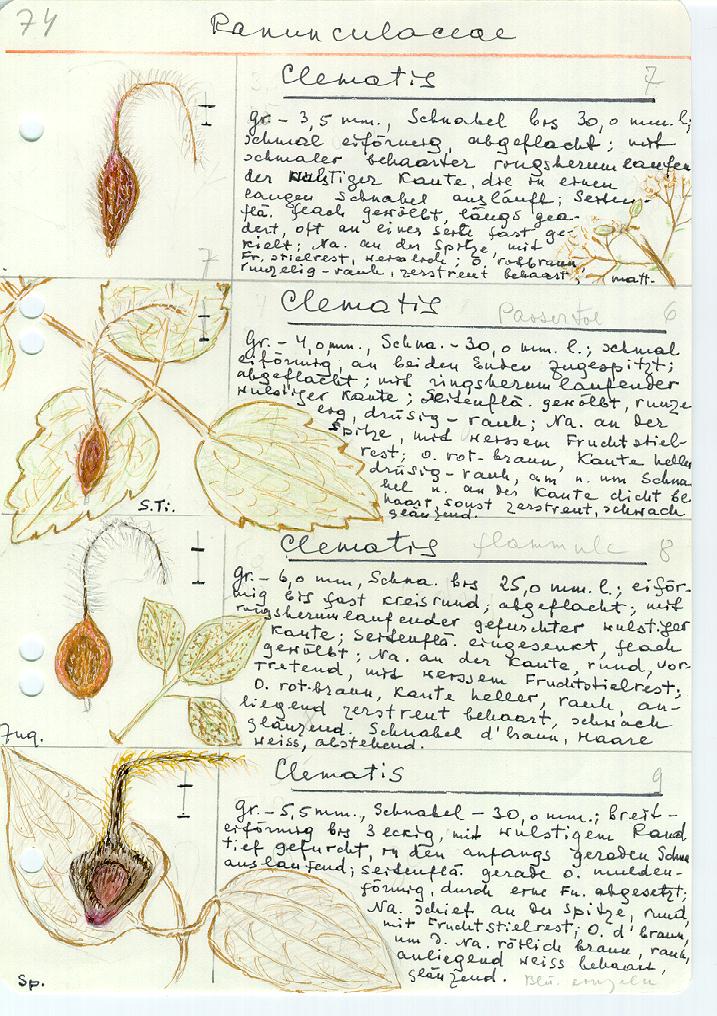 74 Ranunculaceae
Clematis 7
gr.- 3,5 mm., Schnabel bis 30,0 mm. l;
schmal eiförmig, abgeflacht; mit
schmaler behaarter ringsherum laufen
der wulstiger Kante, die in einen
langen Schnabel ausläuft; Seiten-
flä. flach gewölbt, längs gea-
dert, oft an einer Seite fast ge-
kielt; Na. an der Spitze, mit
Fr. stielrest, ; O. rotbraun,
runzelig-rauh, zerstreut behaart, matt.
7
Clematis 6
Gr.- 4,0 mm., Schna.- 30,0 mm. l.; schmal
eiförmig, an beiden Enden zugespitzt;
abgeflacht; mit ringsherum laufender
wulstiger Kante; Seitenflä. gewölbt, runze
lig, drüsig-rauh; Na. an der
Spitze, mit weissem Fruchtstiel-
rest; O. rot-braun, Kante heller
drüsig-rauh, am u. um Schna
bel u. an der Kante dicht be
haart, sonst zerstreut, schwach
glänzend.
S.Ti.
Clematis flammula 8
gr.- 6,0 mm, Schna. bis 25,0 mm. l.; eiför-
mig bis fast kreisrund; abgeflacht; mit
ringsherumlaufender gefurchter wulstiger
Kante; Seitenflä. eingesenkt, flach
gewölbt; Na. an der Kante, rund, vor-
tretend, mit weissem Fruchtstielrest;
O. rot-braun, Kante heller, rauh, an-
liegend zerstreut behaart, schwach
glänzend. Schnabel d'braun, Haare
weiss, abstehend.
Jug.
Clematis 9
gr.- 5,5 mm., Schnabel - 30,0 mm.; breit-
eiförmig bis 3eckig, mit wulstigem Rand
tief gefurcht, in den anfangs geraden Schna
auslaufend; Seitenflä. gerade o. mulden-
förmig, durch eine Fu. abgesetzt;
Na. schief an der Spitze, rund,
mit Fruchtstielrest; O. d'braun,
um d. Na. rötlich braun, rauh,
anliegend weiss behaart,
glänzend. Blü. einzeln
Sp.